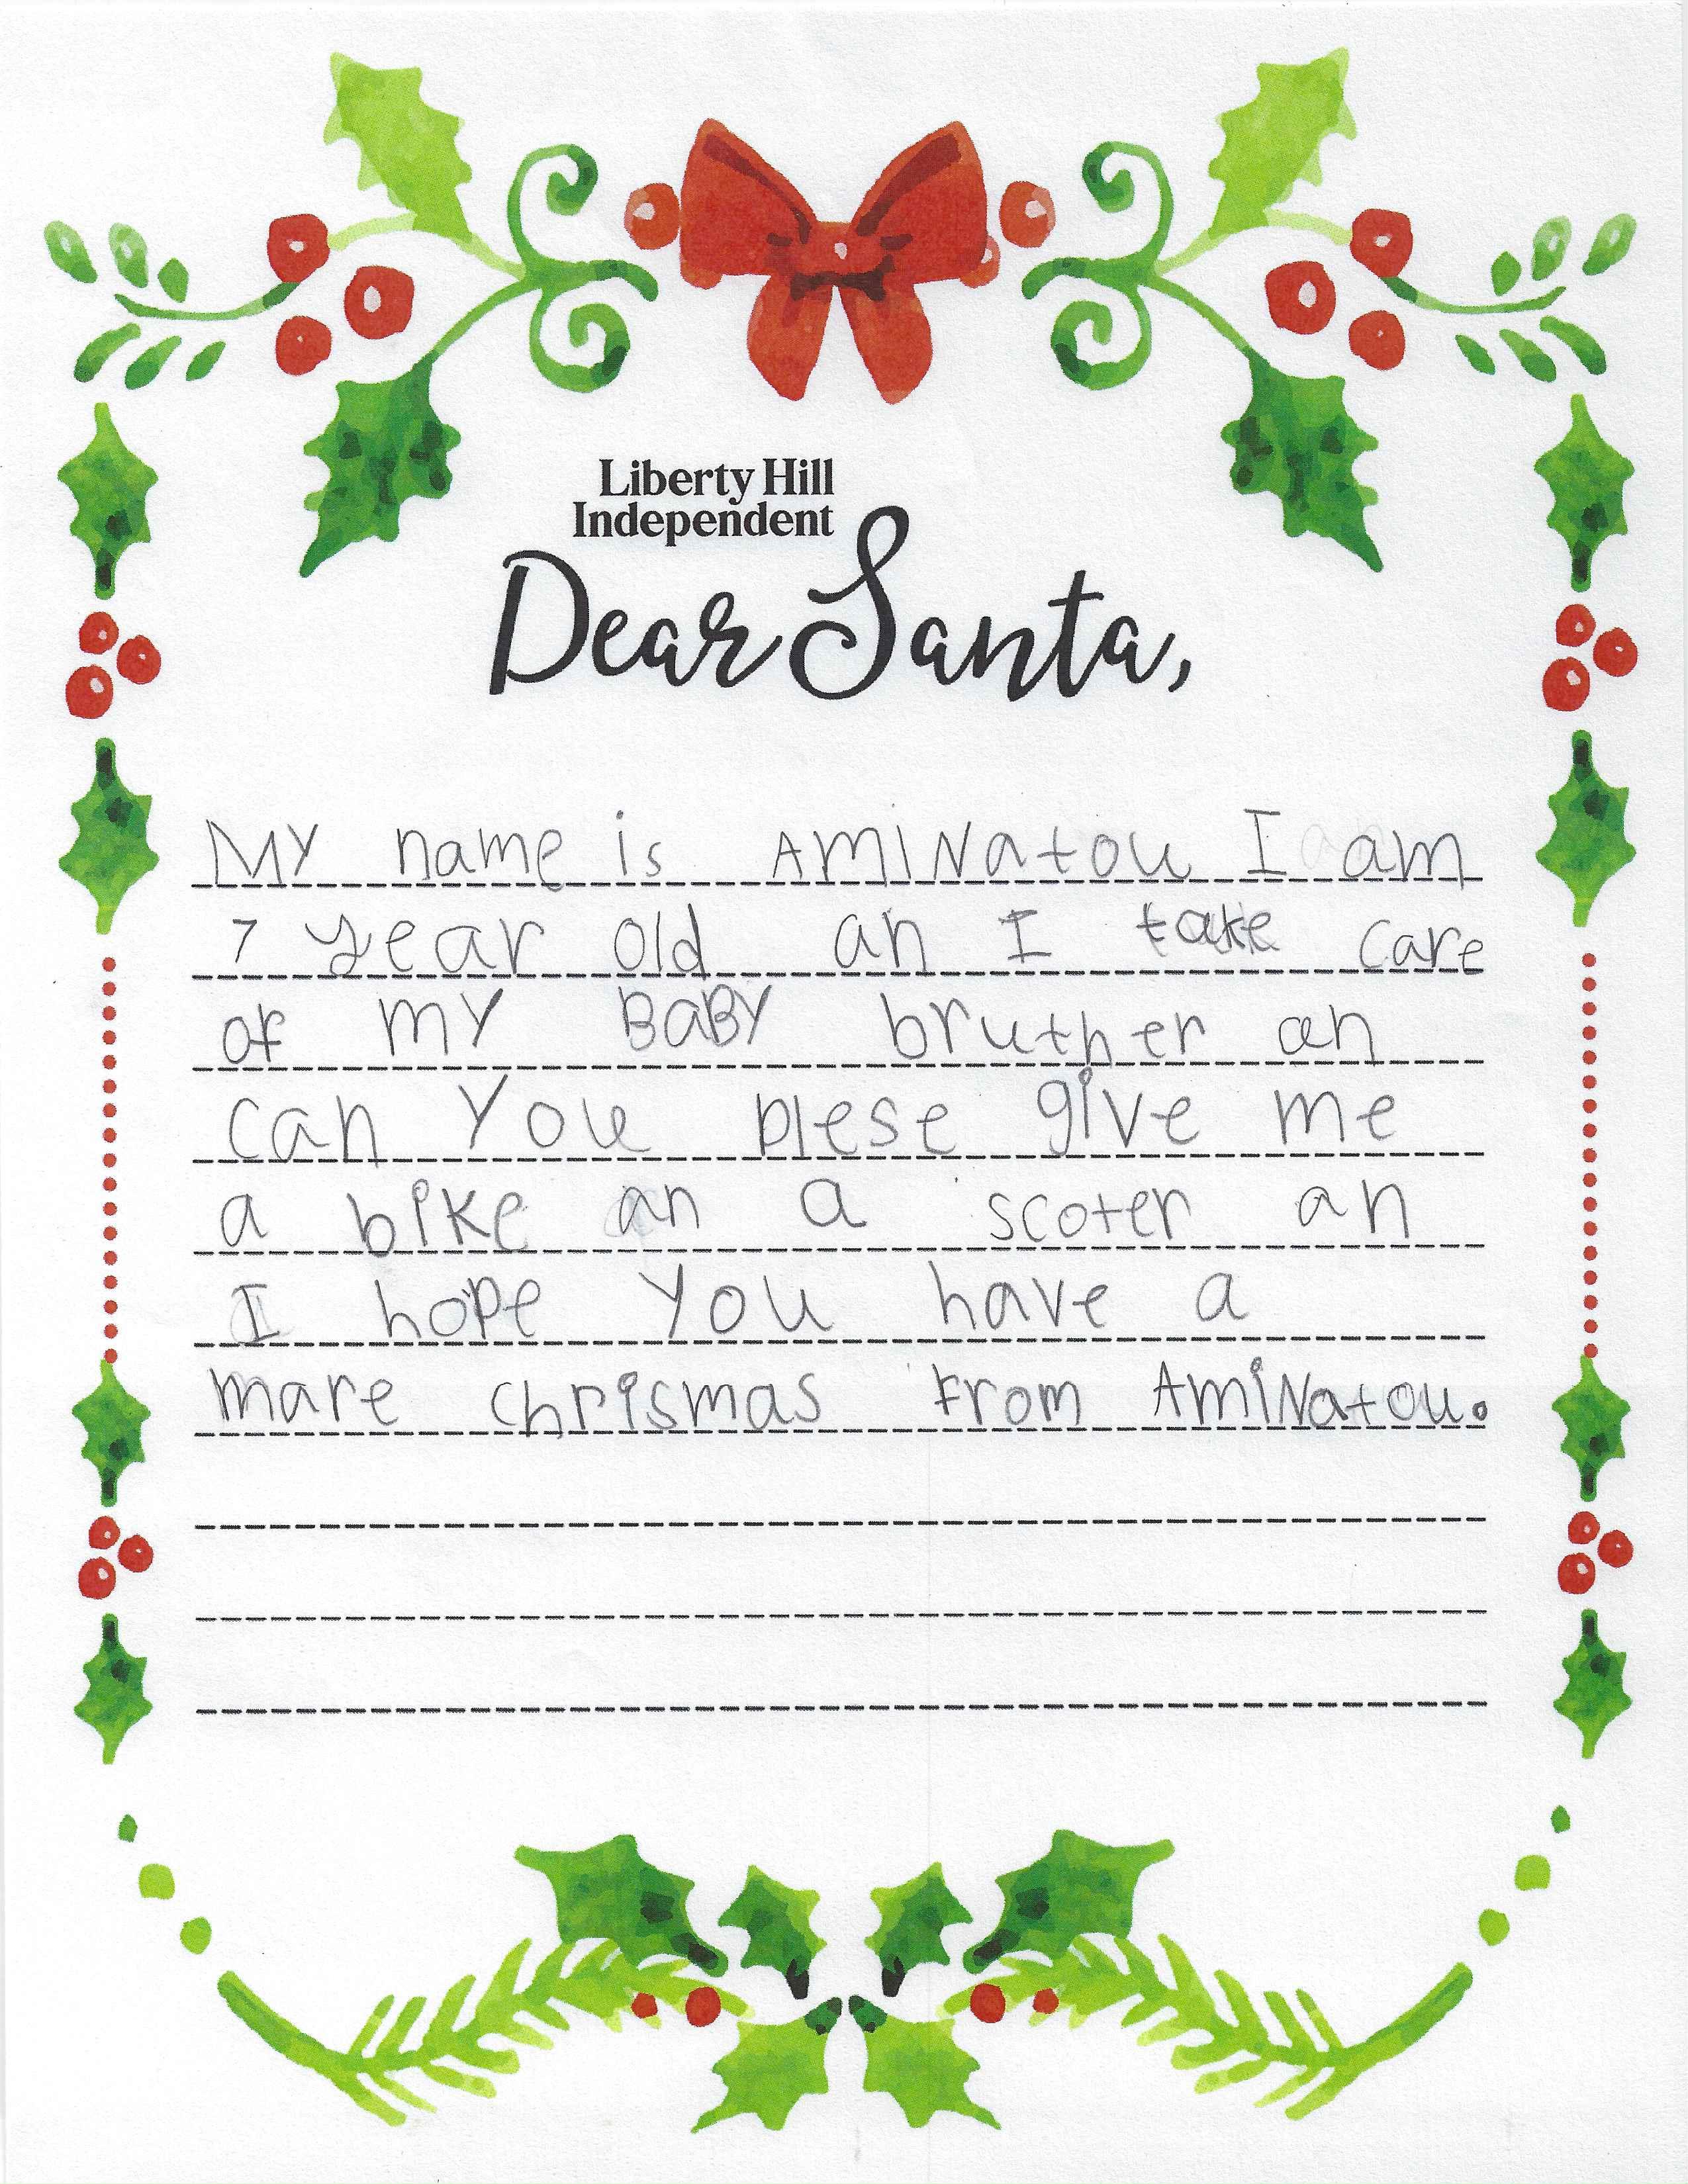 Liberty Hill
Independent
Dear Santa,
MY name is AMINatou I am
7 year old an I take care
of my BABY bruther an
can You plese give me
a bike an a scoter an
I hope You have a
mare chrismas from AmiNatou.